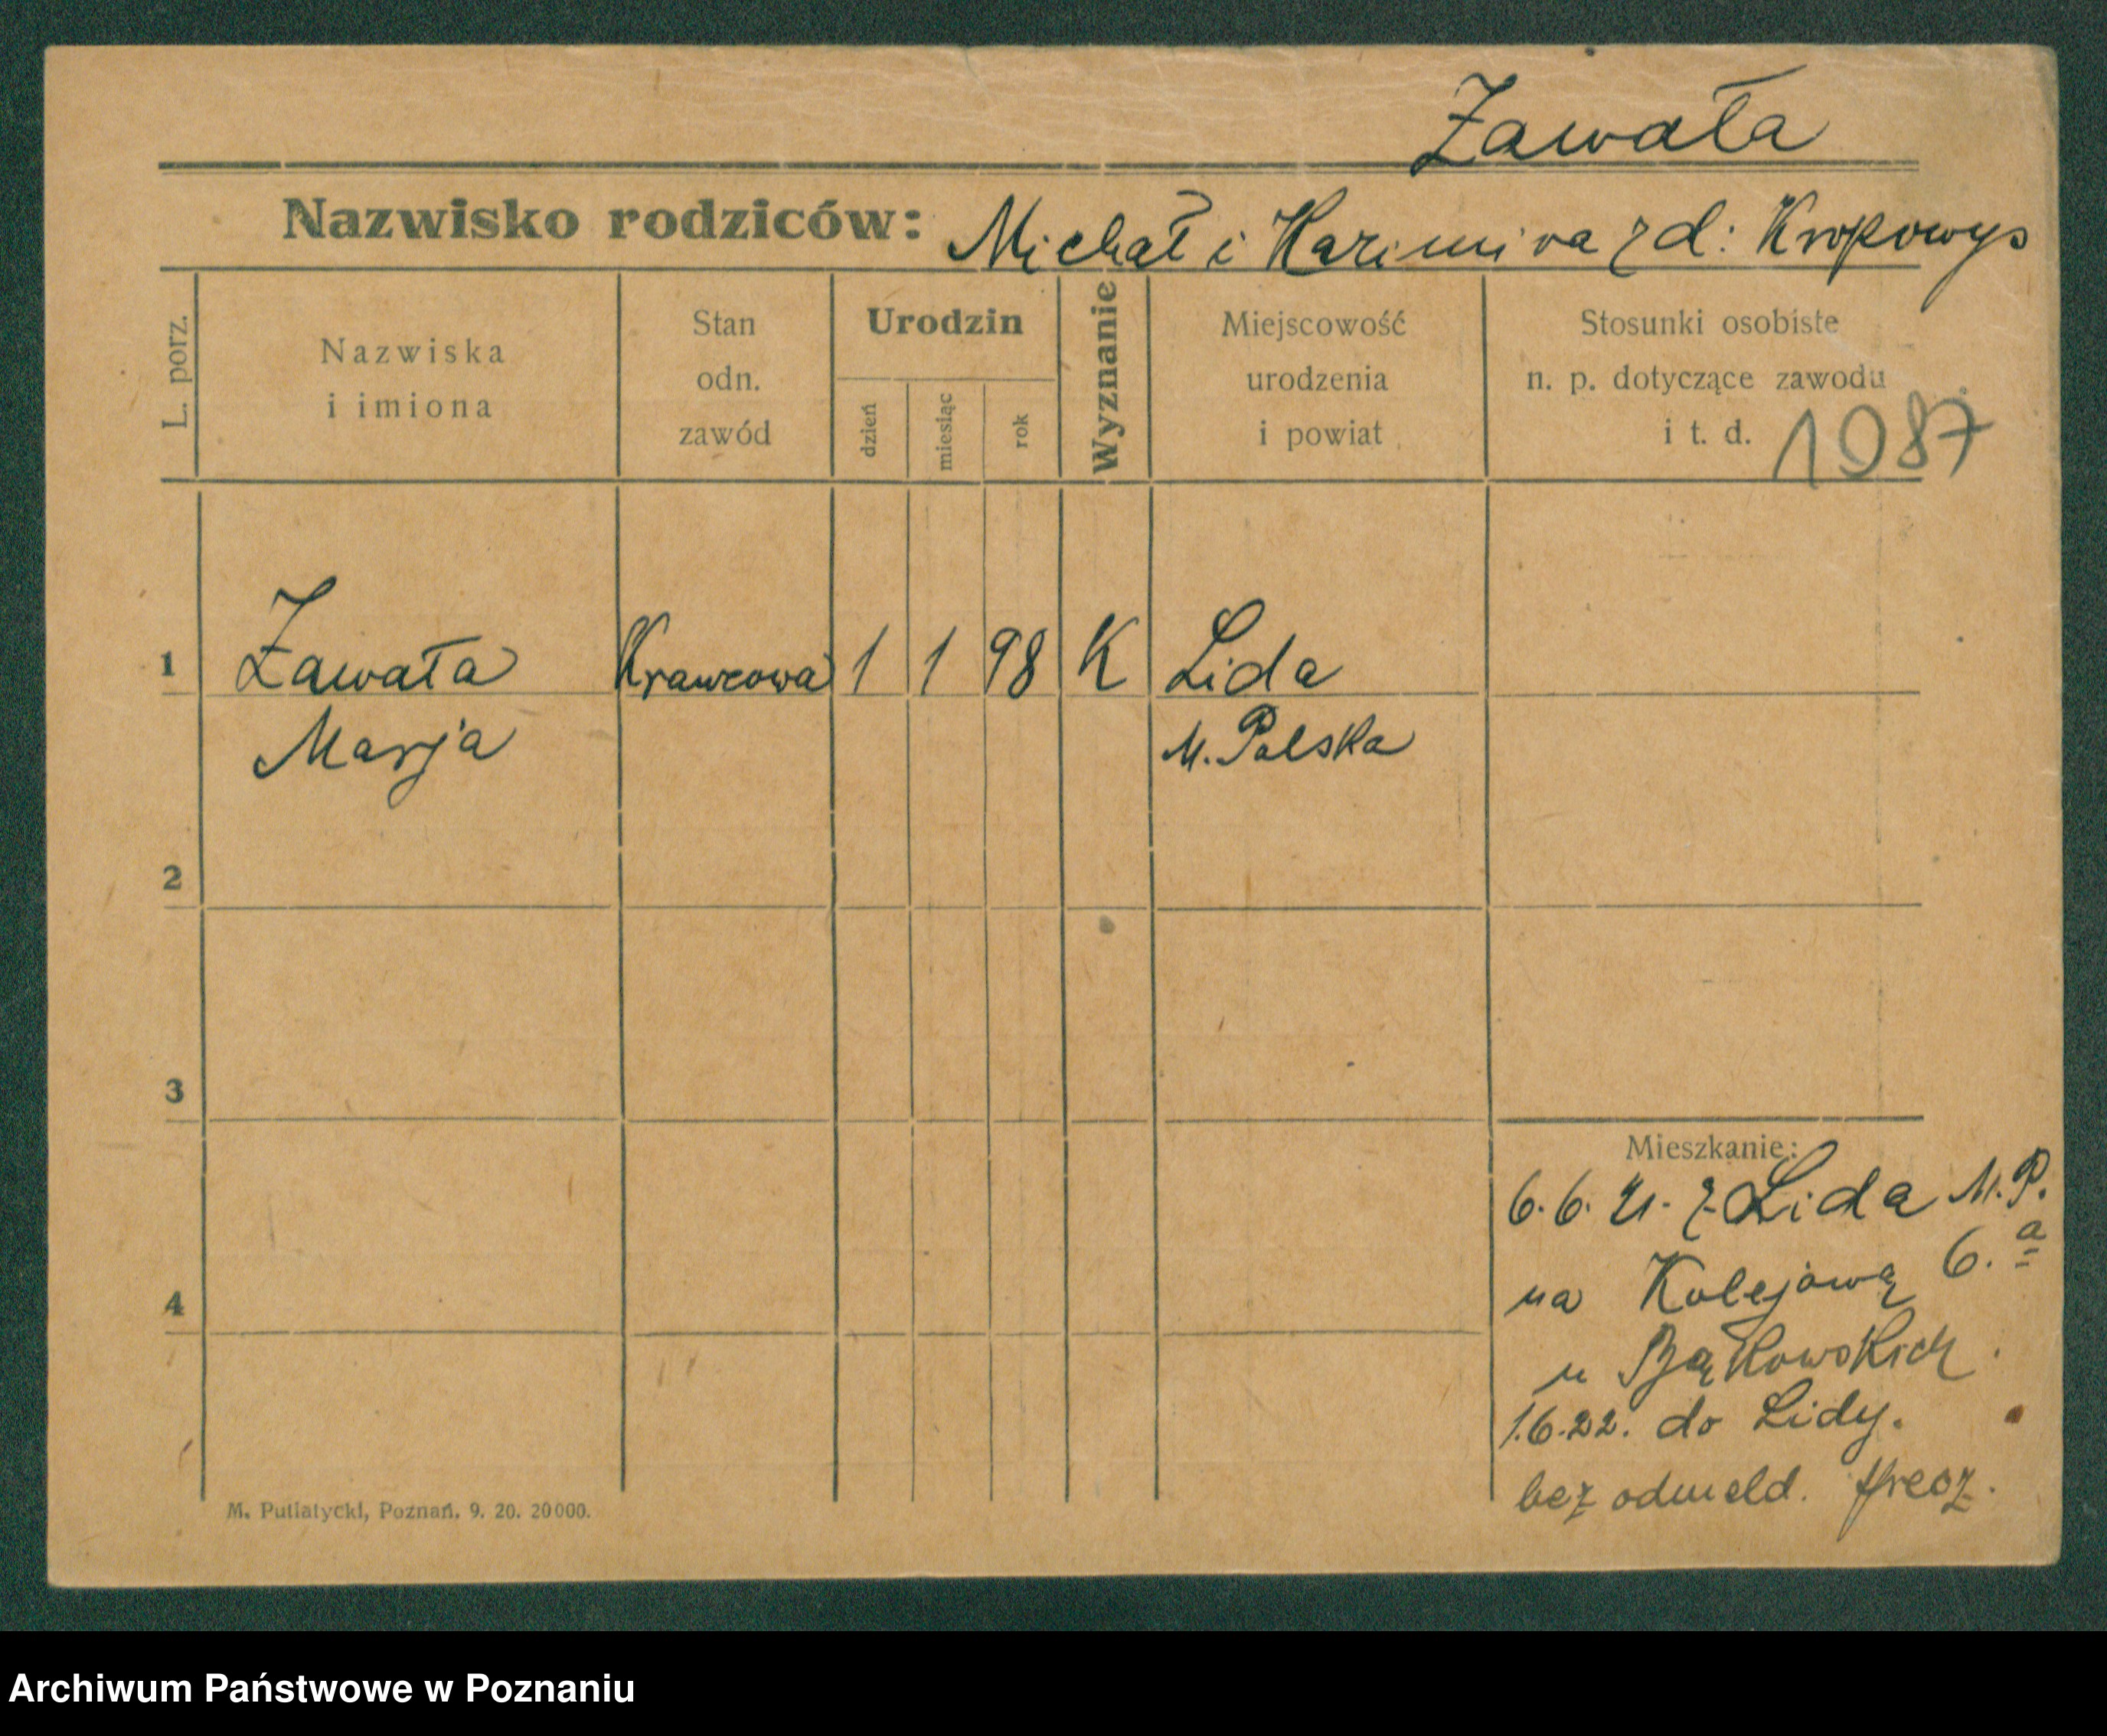 Zawała
Nazwisko rodziców: Michał i Kazimira z d: Kropowys
L. porz.
Nazwiska
i imiona
Stan
odn.
zawód
Urodzin
dzień
miesiąc
rok
Wyznanie
Miejscowość
urodzenia
i powiat
Stosunki osobiste
n. p. dotyczące zawodu
i t. d. 1087
1 Zawała Krawcowa 1 1 98 K Lida
Marja M. Polska
2
3
Mieszkanie:
6. 6. 21. z Lida M. P.
na Kolejową 6. a
4
u Bąkowskich.
1.6.22. do Lidy.
bez odmeld.
M. Putiatycki, Poznań. 9. 20. 20000.
Archiwum Państwowe w Poznaniu